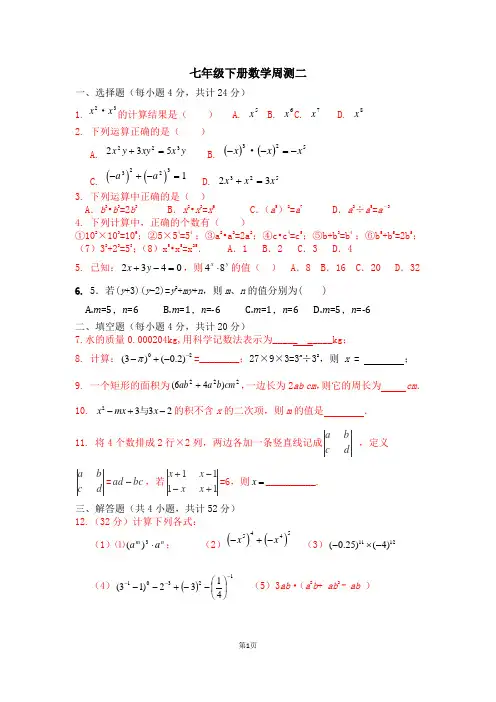 七年级下册数学周测二
一、选择题（每小题4分，共计24分）
1. x²·x³的计算结果是（ ） A. x⁵ B. x⁶ C. x⁷ D. x⁸
2. 下列运算正确的是（ ）
A. 2x²y+3xy=5x³y B. (−x)³·(−x)²=−x⁵
C. (−a³)²+(−a²)³=1 D. 2x³+x²=3x⁵
3. 下列运算中正确的是（ ）
4. 下列计算中，正确的个数有（ ）
5. 已知：2x+3y−4=0，则4ˣ·8ʸ的值（ ） A．8 B．16 C．20 D．32
6. 5．若(y+3)(y-2)=y²+my+n，则m、n的值分别为( )
A.m=5，n=6 B.m=1，n=-6 C.m=1，n=6 D.m=5，n=-6
二、填空题（每小题4分，共计20分）
7.水的质量0.000204kg,用科学记数法表示为__________kg；
8. 计算：(3−π)⁰+(−0.2)⁻²=________；27×9×3=3ˣ÷3²，则 x = ；
9. 一个矩形的面积为(6ab²+4a²b)cm²,一边长为2ab cm,则它的周长为 cm.
10. x²−mx+3与3x−2的积不含x的二次项，则m的值是 .
11. 将4个数排成2行×2列，两边各加一条竖直线记成|a b; c d|，定义
|a b; c d|=ad−bc，若|x+1 x−1; 1−x x+1|=6，则x=__________.
三、解答题（共4小题，共计52分）
12.（32分）计算下列各式：
（1）⑴(aᵐ)³·aⁿ； （2）(−x⁵)⁴+(−x⁴)⁵ （3）(−0.25)¹¹×(−4)¹²
（4）(3⁻¹−1)⁰−2⁻³+(−3)²−(1/4)⁻¹ （5）3ab·（a²b+ ab²- ab ）
第1页